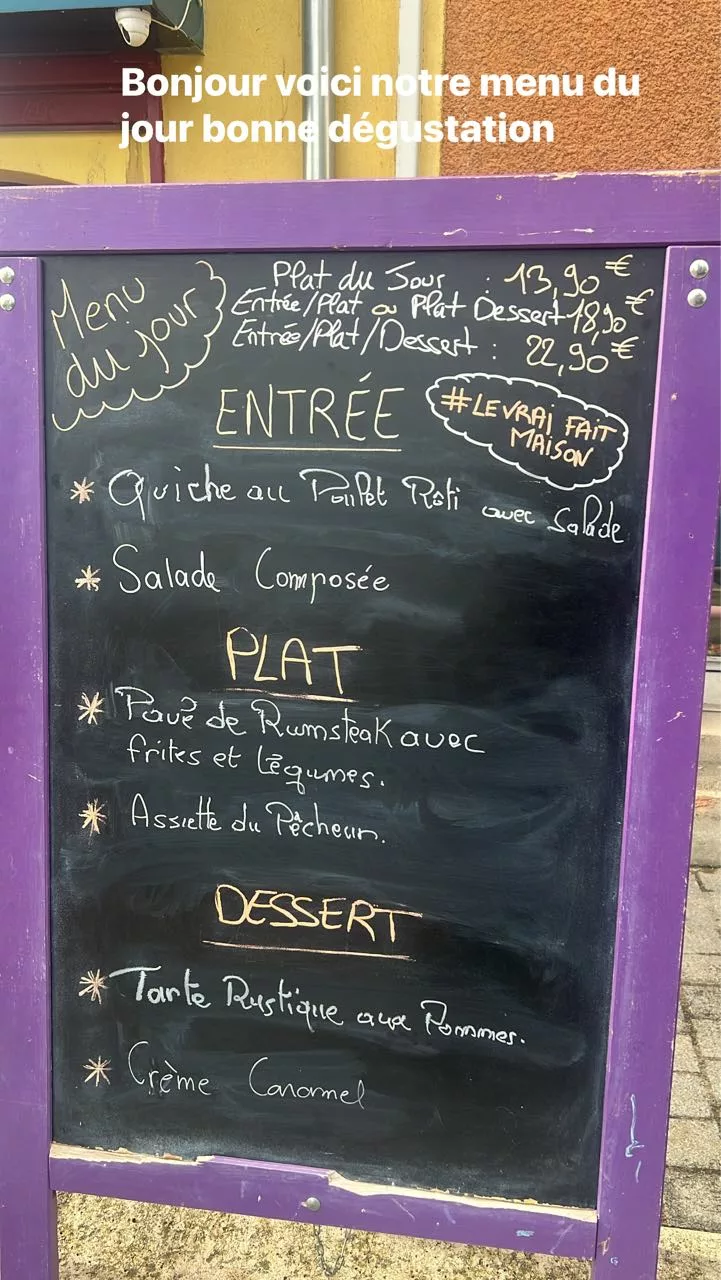 Bonjour voici notre menu du
jour bonne dégustation
Menu
du jour
Plat du Jour : 13,90€
Entrée/Plat ou Plat Dessert 18,90€
Entrée/Plat/Dessert : 22,90€
ENTRÉE
#LE VRAI FAIT
MAISON
* Quiche au Poulet Rôti avec Salade
* Salade Composée
PLAT
* Pavé de Rumsteak avec
frites et légumes.
* Assiette du Pêcheur.
DESSERT
* Tarte Rustique aux Pommes.
* Crème Caramel